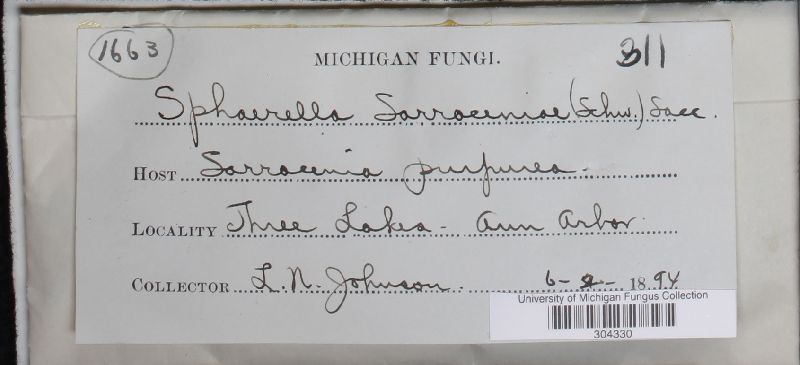 1663 MICHIGAN FUNGI. 311
Sphaerella Sarraceniae (Schw.) Sacc.
HOST Sarracenia purpurea.
LOCALITY Three Lakes - Ann Arbor.
COLLECTOR L. N. Johnson. 6-2- 1894
University of Michigan Fungus Collection
304330